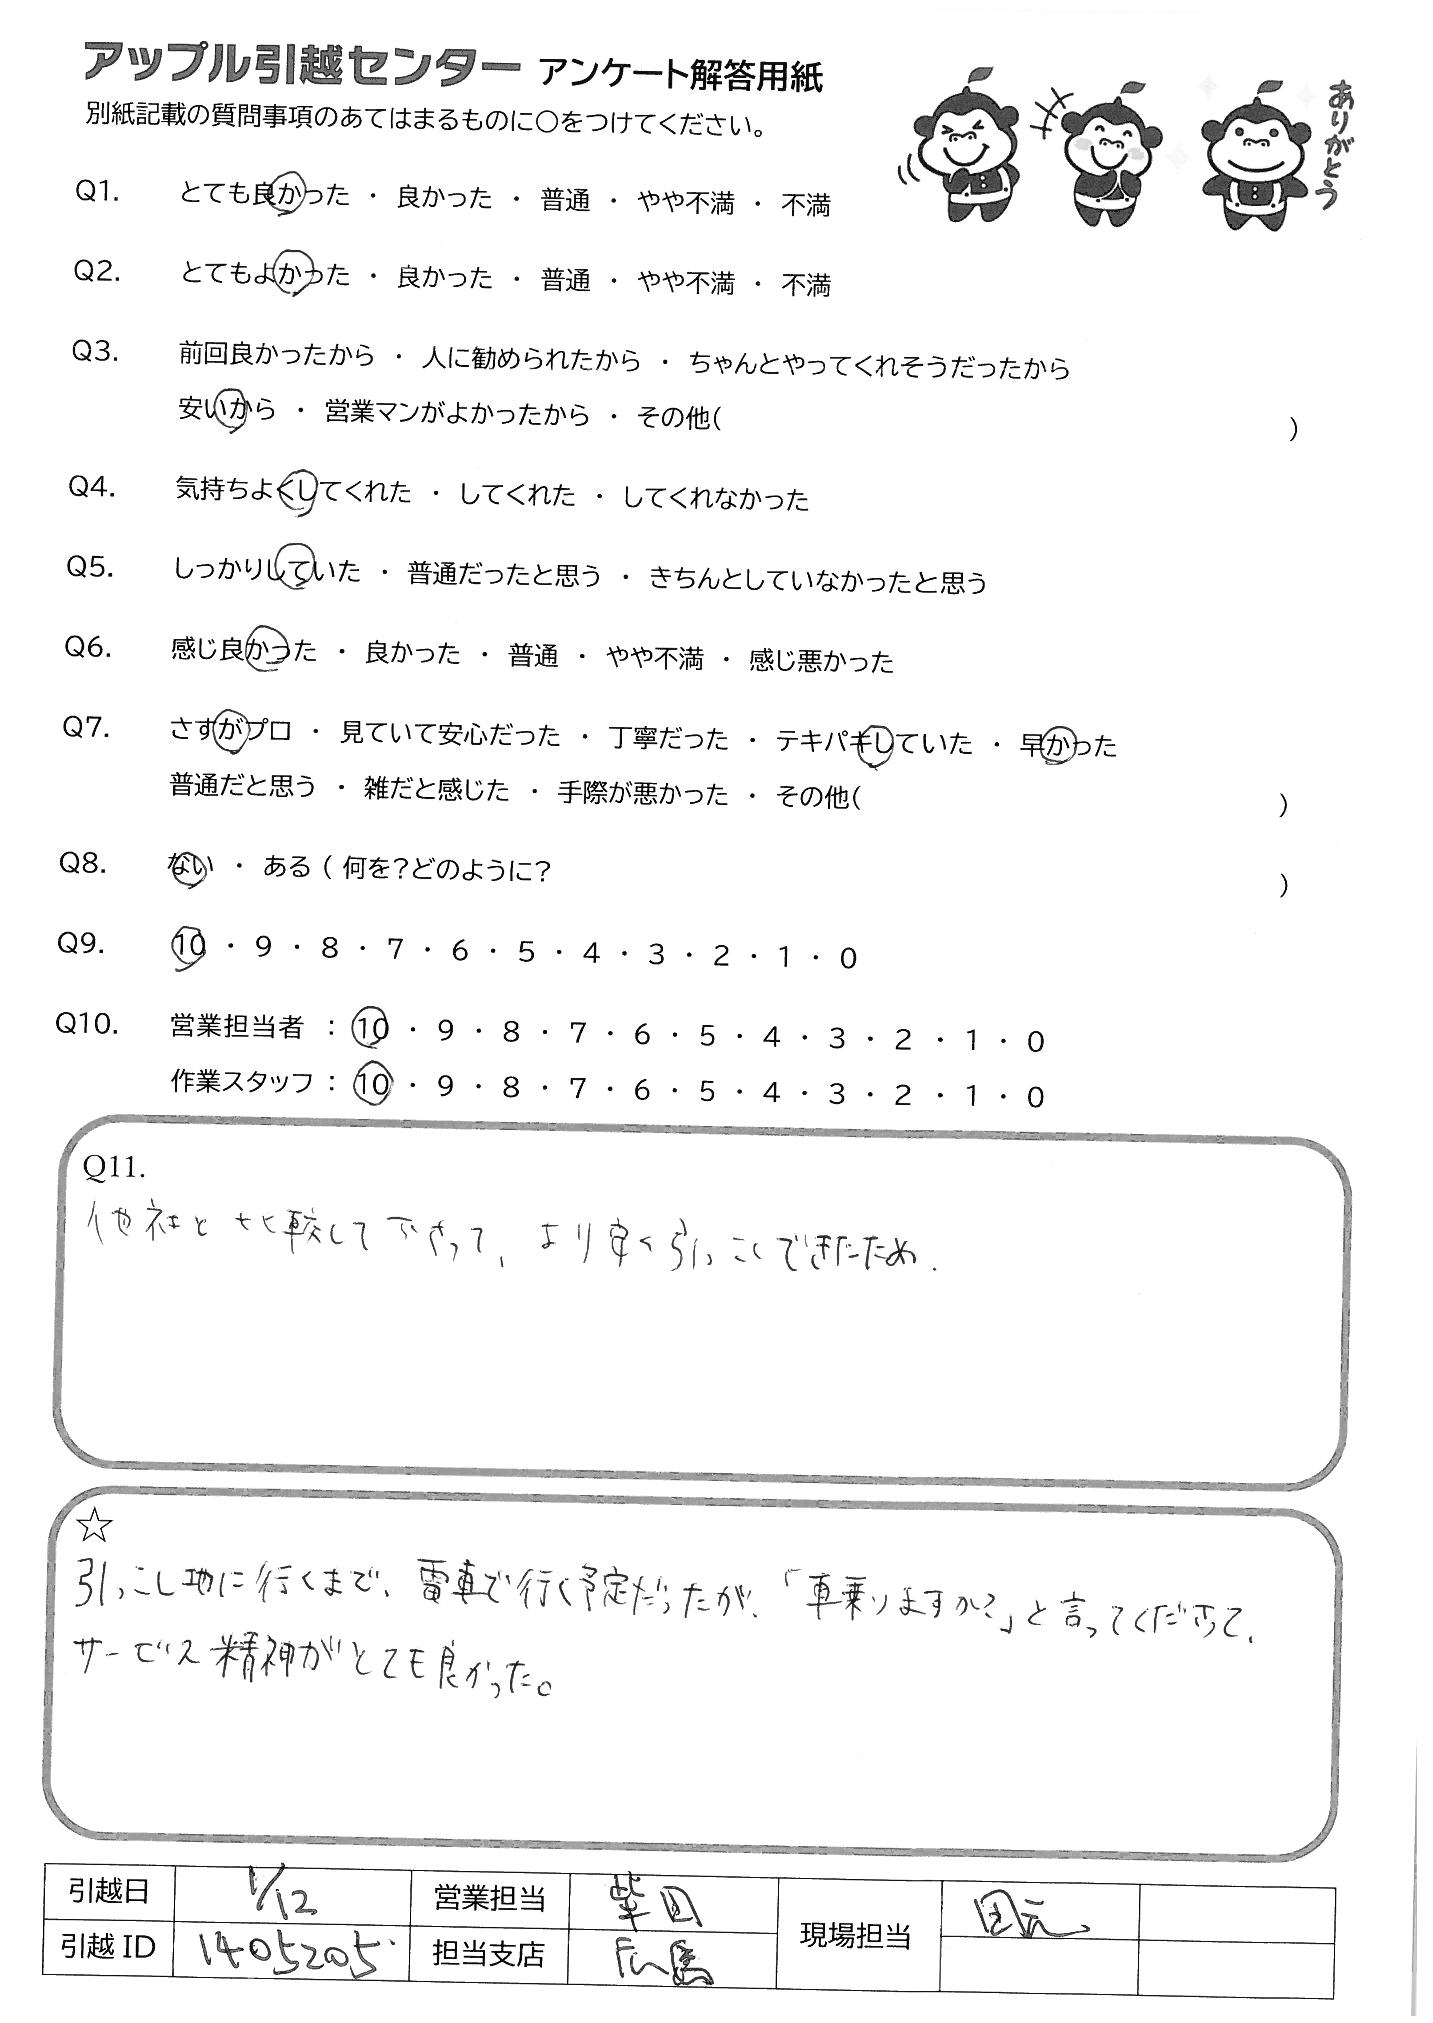 アップル引越センター アンケート解答用紙
別紙記載の質問事項のあてはまるものに○をつけてください。
ありがとう
Q1. とても良かった ・ 良かった ・ 普通 ・ やや不満 ・ 不満
Q2. とてもよかった ・ 良かった ・ 普通 ・ やや不満 ・ 不満
Q3. 前回良かったから ・ 人に勧められたから ・ ちゃんとやってくれそうだったから
安いから ・ 営業マンがよかったから ・ その他( )
Q4. 気持ちよくしてくれた ・ してくれた ・ してくれなかった
Q5. しっかりしていた ・ 普通だったと思う ・ きちんとしていなかったと思う
Q6. 感じ良かった ・ 良かった ・ 普通 ・ やや不満 ・ 感じ悪かった
Q7. さすがプロ ・ 見ていて安心だった ・ 丁寧だった ・ テキパキしていた ・ 早かった
普通だと思う ・ 雑だと感じた ・ 手際が悪かった ・ その他( )
Q8. ない ・ ある ( 何を?どのように? )
Q9. 10 ・ 9 ・ 8 ・ 7 ・ 6 ・ 5 ・ 4 ・ 3 ・ 2 ・ 1 ・ 0
Q10. 営業担当者 : 10 ・ 9 ・ 8 ・ 7 ・ 6 ・ 5 ・ 4 ・ 3 ・ 2 ・ 1 ・ 0
作業スタッフ : 10 ・ 9 ・ 8 ・ 7 ・ 6 ・ 5 ・ 4 ・ 3 ・ 2 ・ 1 ・ 0
Q11.
他社と比較して下さって、より安く引っこしできたため.
☆
引っこし地に行くまで、電車で行く予定だったが、「車乗りますか?」と言ってくださって、
サービス精神がとても良かった。
引越日 1/12 営業担当 柴田 現場担当
引越ID 1405205 担当支店 広島